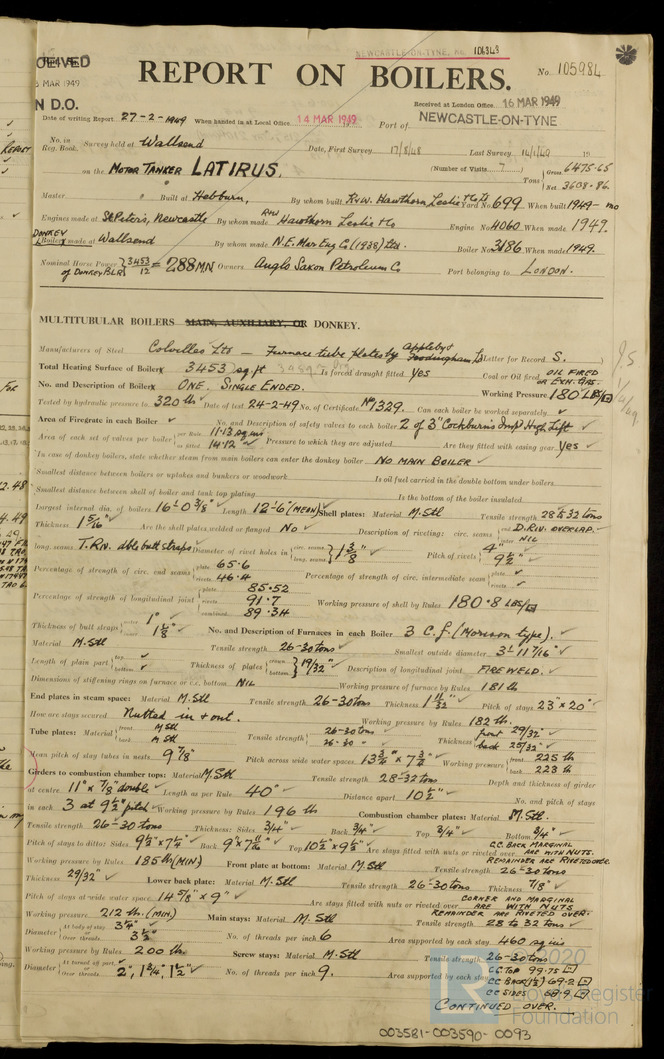 NEWCASTLE-ON-TYNE, No. 106343
REPORT ON BOILERS.
No. 105984
Received at London Office 16 MAR 1949
Date of writing Report 27-2-1949 When handed in at Local Office 14 MAR 1949 Port of NEWCASTLE-ON-TYNE
No. in Reg. Book. Survey held at Wallsend Date, First Survey 17/8/48 Last Survey 14/1/49 19
on the MOTOR TANKER LATIRUS. (Number of Visits 7) Tons Gross 6475.65 Net 3608.86
Master Built at Hebburn, By whom built R & W. Hawthorn Leslie & Co Ld Yard No 699 When built 1949
Engines made at St Peter's, Newcastle By whom made R&W Hawthorn Leslie & Co Engine No 4060 When made 1949.
DONKEY Boilers made at Wallsend By whom made N.E. Mar Eng Co (1938) Ltd. Boiler No 3186 When made 1949.
Nominal Horse Power of Donkey BLR 3453/12 = 288 MN Owners Anglo Saxon Petroleum Co Port belonging to LONDON.
MULTITUBULAR BOILERS MAIN, AUXILIARY, OR DONKEY.
Manufacturers of Steel Colvilles Ltd — Furnace tube plates by Appleby Frodingham Ld (Letter for Record S.)
Total Heating Surface of Boilers 3453 sq ft Is forced draught fitted Yes Coal or Oil fired OIL FIRED OR EXH. GAS.
No. and Description of Boilers ONE, SINGLE ENDED. Working Pressure 180 LBS/□
Tested by hydraulic pressure to 320 lb Date of test 24-2-49 No. of Certificate No 1329. Can each boiler be worked separately ✓
Area of Firegrate in each Boiler ✓ No. and Description of safety valves to each boiler 2 of 3" Cockburn's Impd High Lift ✓
Area of each set of valves per boiler per Rule 11.13 sq ins as fitted 14.12 Pressure to which they are adjusted Are they fitted with easing gear Yes ✓
In case of donkey boilers, state whether steam from main boilers can enter the donkey boiler NO MAIN BOILER ✓
Smallest distance between boilers or uptakes and bunkers or woodwork Is oil fuel carried in the double bottom under boilers
Smallest distance between shell of boiler and tank top plating Is the bottom of the boiler insulated
Largest internal dia. of boilers 16'-0 3/8" ✓ Length 12'-6" (MEAN) Shell plates: Material M. Stl Tensile strength 28 to 32 tons
Thickness 1 5/16" Are the shell plates welded or flanged NO Description of riveting: circ. seams end D. RIV. OVERLAP. inter NIL
long. seams T. RIV. dble butt straps Diameter of rivet holes in circ. seams long. seams 1 3/8" Pitch of rivets 4" 9 1/2"
Percentage of strength of circ. end seams plate 65.6 rivets 46.4 Percentage of strength of circ. intermediate seam plate rivets
Percentage of strength of longitudinal joint plate 85.52 rivets 91.7 combined 89.34 Working pressure of shell by Rules 180.8 LBS/□
Thickness of butt straps outer 1" inner 1 1/8" No. and Description of Furnaces in each Boiler 3 C.f. (Morison type). ✓
Material M. Stl Tensile strength 26-30 tons Smallest outside diameter 3'-11 7/16" ✓
Length of plain part top bottom Thickness of plates crown bottom 19/32" ✓ Description of longitudinal joint FIRE WELD. ✓
Dimensions of stiffening rings on furnace or c.c. bottom NIL Working pressure of furnace by Rules 181 lb
End plates in steam space: Material M. Stl Tensile strength 26-30 tons Thickness 1 11/32" Pitch of stays 23" x 20"
How are stays secured Nutted in & out. Working pressure by Rules 182 lb.
Tube plates: Material front M Stl back M Stl Tensile strength 26-30 tons 26-30 Thickness front 29/32" back 25/32"
Mean pitch of stay tubes in nests 9 7/8" Pitch across wide water spaces 13 3/4" x 7 3/4" Working pressure front 225 lb back 223 lb
Girders to combustion chamber tops: Material M. Stl Tensile strength 28-32 tons Depth and thickness of girder
at centre 11" x 7/8" double Length as per Rule 40" Distance apart 10 1/2" No. and pitch of stays
in each 3 at 9 1/2" pitch Working pressure by Rules 196 lb Combustion chamber plates: Material M. Stl.
Tensile strength 26-30 tons Thickness: Sides 3/4" Back 3/4" Top 3/4" Bottom 3/4"
Pitch of stays to ditto: Sides 9 1/2" x 7 1/2" Back 9" x 7 7/16" Top 10 1/2" x 9 1/2" Are stays fitted with nuts or riveted over C.C. BACK MARGINAL ARE WITH NUTS. REMAINDER ARE RIVETED OVER.
Working pressure by Rules 185 lb (MIN) Front plate at bottom: Material M. Stl Tensile strength 26-30 tons
Thickness 29/32" Lower back plate: Material M. Stl Tensile strength 26-30 tons Thickness 7/8" ✓
Pitch of stays at wide water space 14 5/8" x 9" Are stays fitted with nuts or riveted over CORNER AND MARGINAL ARE WITH NUTS REMAINDER ARE RIVETED OVER.
Working pressure 212 lb. (MIN) Main stays: Material M. Stl Tensile strength 28 to 32 tons
Diameter At body of stay 3 1/4" or Over threads 3 1/2" No. of threads per inch 6 Area supported by each stay 460 sq ins
Working pressure by Rules 200 lb Screw stays: Material M. Stl Tensile strength 26-30 tons
Diameter At turned off part or Over threads 2", 1 3/4", 1 1/2" ✓ No. of threads per inch 9. Area supported by each stay CC TOP 99.75 □" CC BACK 69.2 □ CC SIDES 68.9 □
CONTINUED OVER.
003581-003590-0093
2020
Lloyd's Register
Foundation